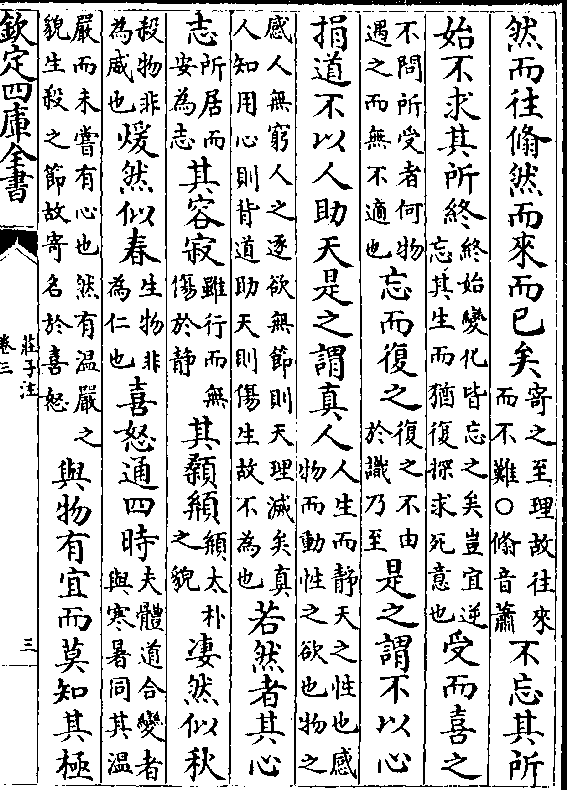 然而往翛然而來而已矣寄之至理故往來而不難○翛音蕭不忘其所
始不求其所終終始變化皆忘之矣豈宜逆忘其生而猶復探求死意也受而喜之
不問所受者何物遇之而無不適也忘而復之復之不由於識乃至是之謂不以心
捐道不以人助天是之謂真人人生而靜天之性也感物而動性之欲也物之
感人無窮人之逐欲無節則天理滅矣真人知用心則背道助天則傷生故不為也若然者其心
志所居而安為志其容寂雖行而無傷於靜其顙頯頯太朴之貌凄然似秋
殺物非為威也煖然似春生物非為仁也喜怒通四時夫體道合變者與寒暑同其溫
嚴而未嘗有心也然有溫嚴之貌生殺之節故寄名於喜怒與物有宜而莫知其極
欽定四庫全書
莊子注
卷三
三